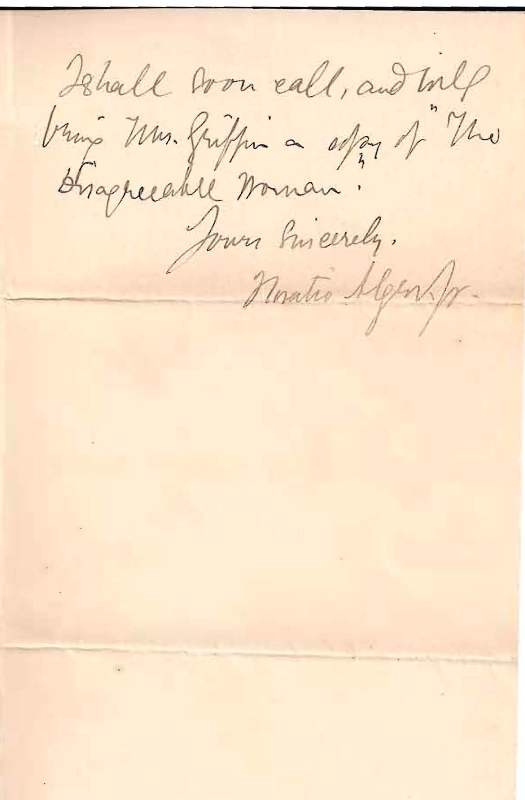 I shall soon call, and will
bring Mrs. Griffin a copy of "The
Disagreeable Woman".
Yours Sincerely,
Horatio Alger Jr.